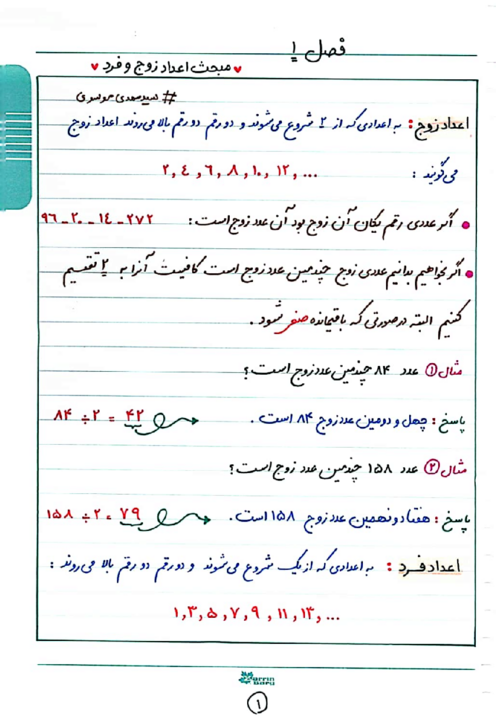 فصل ۱
♥ مبحث اعداد زوج و فرد ♥
# سیدمهدی موسوی
اعداد زوج : به اعدادی که از ۲ شروع می‌شوند و دو رقم دو رقم بالا می‌روند اعداد زوج
می‌گویند : ۲ , ٤ , ۶ , ۸ , ۱۰ , ۱۲ , ...
اگر عددی رقم یکان آن زوج بود آن عدد زوج است : ۲۷۲ - ۱٤ - ۲۰ - ۹۶
اگر بخواهیم بدانیم عددی زوج چندمین عدد زوج است کافیست آنرا به ۲ تقسیم
کنیم البته در صورتی که باقیمانده صفر شود .
مثال ۱ عدد ۸٤ چندمین عدد زوج است ؟
پاسخ : چهل و دومین عدد زوج ۸٤ است . ۸٤ ÷ ۲ = ٤۲
مثال ۲ عدد ۱۵۸ چندمین عدد زوج است ؟
پاسخ : هفتاد و نهمین عدد زوج ۱۵۸ است . ۱۵۸ ÷ ۲ = ۷۹
اعداد فرد : به اعدادی که از یک شروع می‌شوند و دو رقم دو رقم بالا می‌روند :
۱ , ۳ , ۵ , ۷ , ۹ , ۱۱ , ۱۳ , ...
۱